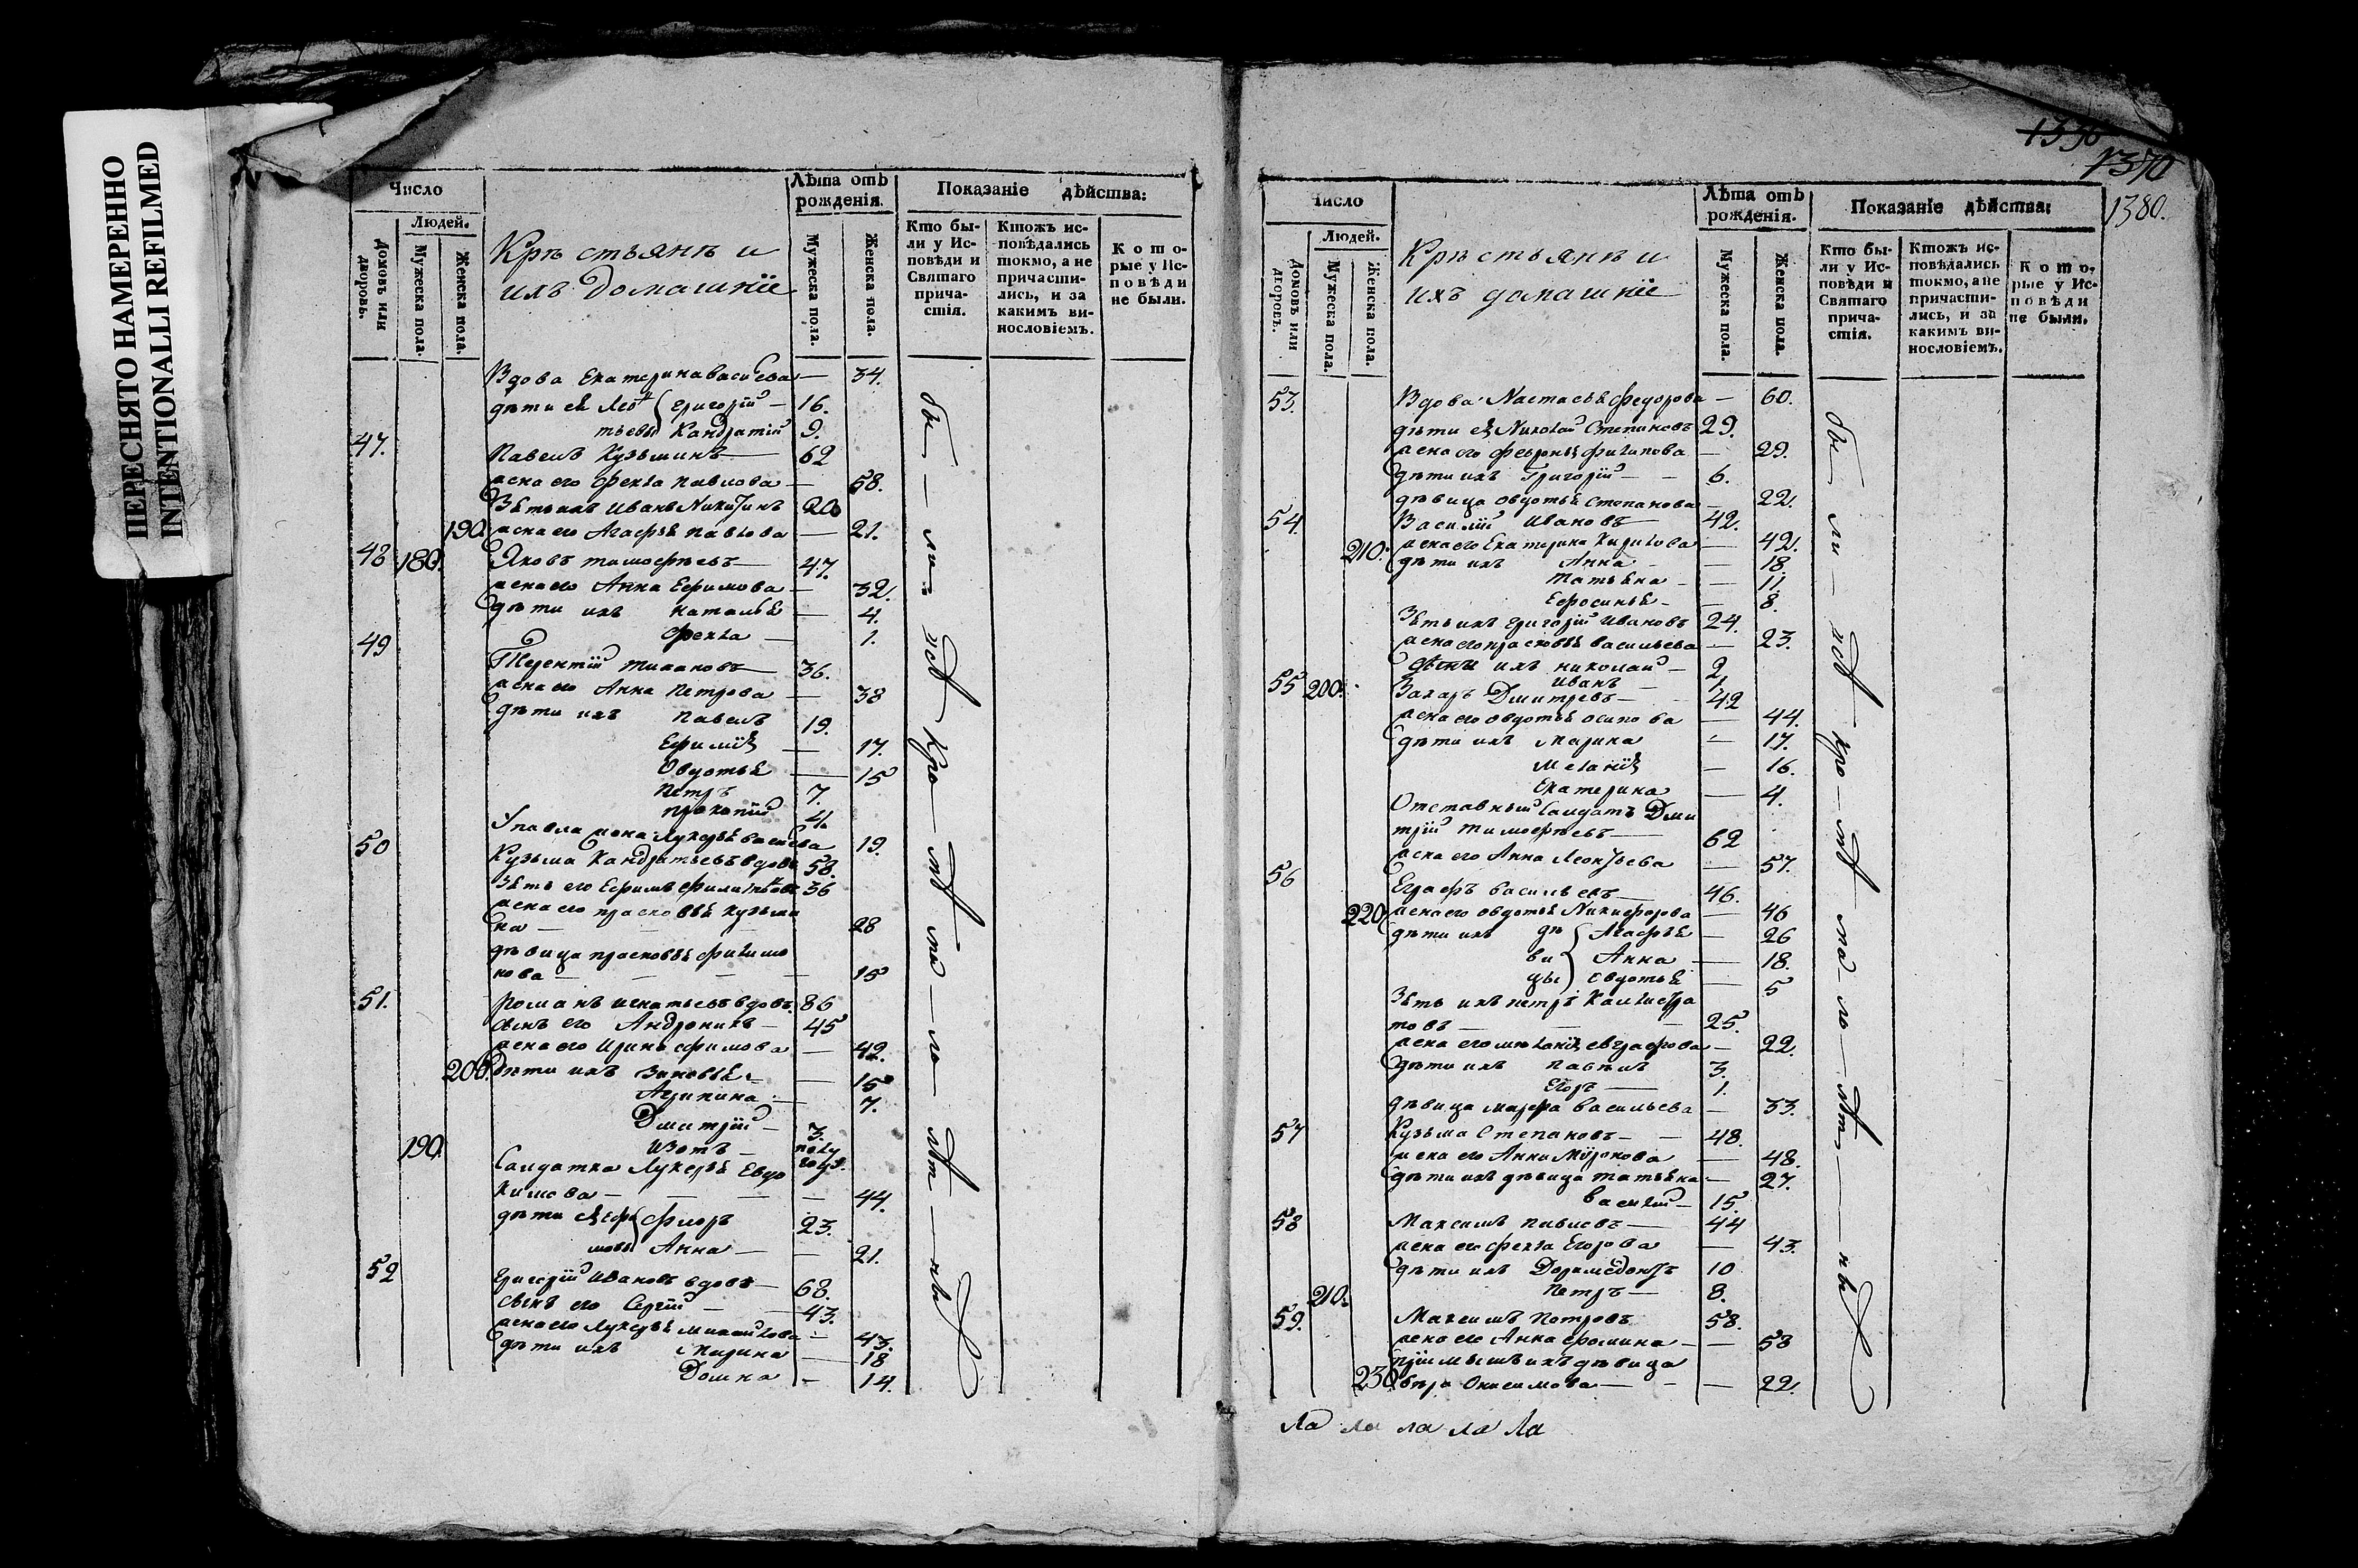 ПЕРЕСНЯТО НАМЕРЕННО
INTENTIONALLI REFILMED
Число
Лѣта отъ рожденія.
Показаніе дѣйства:
Людей.
Домовъ или дворовъ.
Мужеска пола.
Женска пола.
Крѣстьянѣ и
ихъ Домашніе
Мужеска пола.
Женска пола.
Кто были у Исповѣди и Святаго причастія.
Ктожъ исповѣдались токмо, а не причастились, и за какимъ винословіемъ.
Которые у Исповѣди не были.
Вдова Екатерина Васиева — 34.
дѣти ея Лео { Григорій — 16.
тьевы Кандратій 9.
47. Павелъ Кузьминъ — 62
жена его Фекла Павлова — 58.
Зять ихъ Иванъ Никитинъ 20
190. жена его Агафья Павлова — 21.
48 180. Яковъ Тимофѣевъ — 47.
жена его Анна Ефимова — 32.
дѣти ихъ Наталья — 4.
Фекла — 1.
49 Терентій — 36.
жена его Анна Петрова — 38
дѣти ихъ Павелъ 19.
Ефимія — 17.
Овдотья — 15
Петръ 7.
Прокопій 4.
У Павла жена Лукерья Васиева 19.
50 Кузьма Кандратьевъ вдовъ 58.
Зять его Ефимъ 36
жена его Прасковья Кузьми
на — 28
дѣвица Прасковья Филимо
нова — 15
51. Романъ Игнатьевъ вдовъ 86
сынъ его Андроникъ — 45
жена его Ирина Ефимова — 42.
200. дѣти ихъ Зиновья — 15
Агрипина — 7.
Дмитрій — 3.
190. Изотъ — полу
года.
Салдатка Лукерья Евдо
кимова — 44.
дѣти ея { Флоръ 23.
Анна — 21.
52 Григорій Ивановъ вдовъ — 68.
сынъ его Сергій — 43.
жена его Лукерья Михайлова — 43.
дѣти ихъ Марина — 18
Домна — 14.
бы — ли — всѣ — кро — мѣ — ма — ло — лѣт — ны
1370
1380.
Число
Лѣта отъ рожденія.
Показаніе дѣйства:
Людей.
Домовъ или дворовъ.
Мужеска пола.
Женска пола.
Крѣстьянѣ и
ихъ домашніе
Мужеска пола.
Женска пола.
Кто были у Исповѣди и Святаго причастія.
Ктожъ исповѣдались токмо, а не причастились, и за какимъ винословіемъ.
Которые у Исповѣди не были.
53. Вдова Настасья Федорова — 60.
дѣти ея Николай Степановъ 29.
жена его Февронья Филипова — 29.
дѣти ихъ Григорій — 6.
дѣвица Овдотья Степанова — 22.
54 Василій Ивановъ — 42.
210. жена его Екатерина Кирилова — 42.
дѣти ихъ Анна — 18
Татьяна — 11.
Ефросинья — 8.
Зять ихъ Григорій Ивановъ 24.
жена его Прасковья Васильева — 23.
дѣти ихъ Николай — 2
Иванъ — 1.
55 200. Захаръ Дмитревъ — 42
жена его Овдотья Осипова — 44.
дѣти ихъ Марина — 17.
Меланія — 16.
Екатерина — 4.
Отставный Салдатъ Дми
трій Тимофѣевъ — 62
жена его Анна Леонтьева — 57.
56 Еграфъ Васильевъ — 46.
220 жена его Овдотья Никифорова — 46
дѣти ихъ дѣ { Агафья — 26
ви Анна — 18.
цы Евдотья — 5
Зять ихъ Петръ Калистра
товъ — 25.
жена его Меланія Евграфова — 22.
дѣти ихъ Павелъ 3.
Егоръ — 1.
дѣвица Марфа Васильева — 33.
57 Кузьма Степановъ — 48.
жена его Анна Миронова — 48.
дѣти ихъ дѣвица Татьяна — 27.
Василій — 15.
58 Максимъ Павловъ — 44
жена его Фекла Егорова — 43.
дѣти ихъ Доримедонтъ 10
210. Петръ — 8.
59. Максимъ Петровъ 58.
жена его Анна Фомина — 58
пріимышъ ихъ дѣвица
230 Вѣра Онисимова — 22.
бы — ли — всѣ — кро — мѣ — ма — ло — лѣт — ны
ла ла ла ла ла